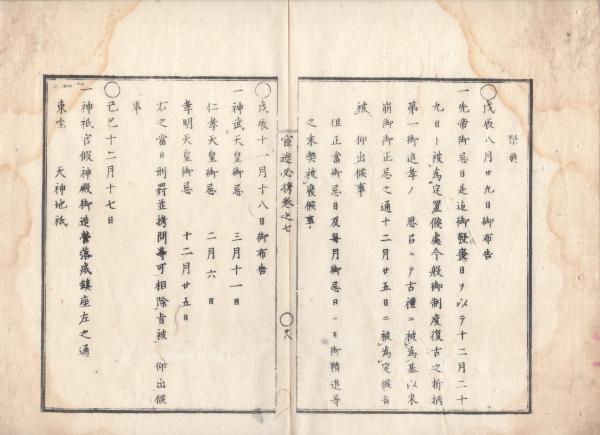 祭典
○戊辰八月廿九日御布告
一先帝御忌日是迠御發喪日ヲ以テ十二月二十
九日ト被為定置候處今般御制度復古之折柄
第一御追孝ノ　思召ニテ古禮ニ被為基以来
崩御御正忌之通十二月廿五日ニ被為定候旨
被　仰出候事
但正當御忌日及毎月御忌日ニモ御精進等
之未癸被襄候事
宣
必携巻之七
○戊辰十一月十八日御布告
一神武天皇御忌　三月十一日
仁孝天皇御忌　二月六日
孝明天皇御忌　十二月廿五日
右之當日刑罰並拷問等可相除旨被　仰出候
事
○己巳十二月十七日
一神祇官假神殿御造營落成鎮座左之通
東座　天神地祇